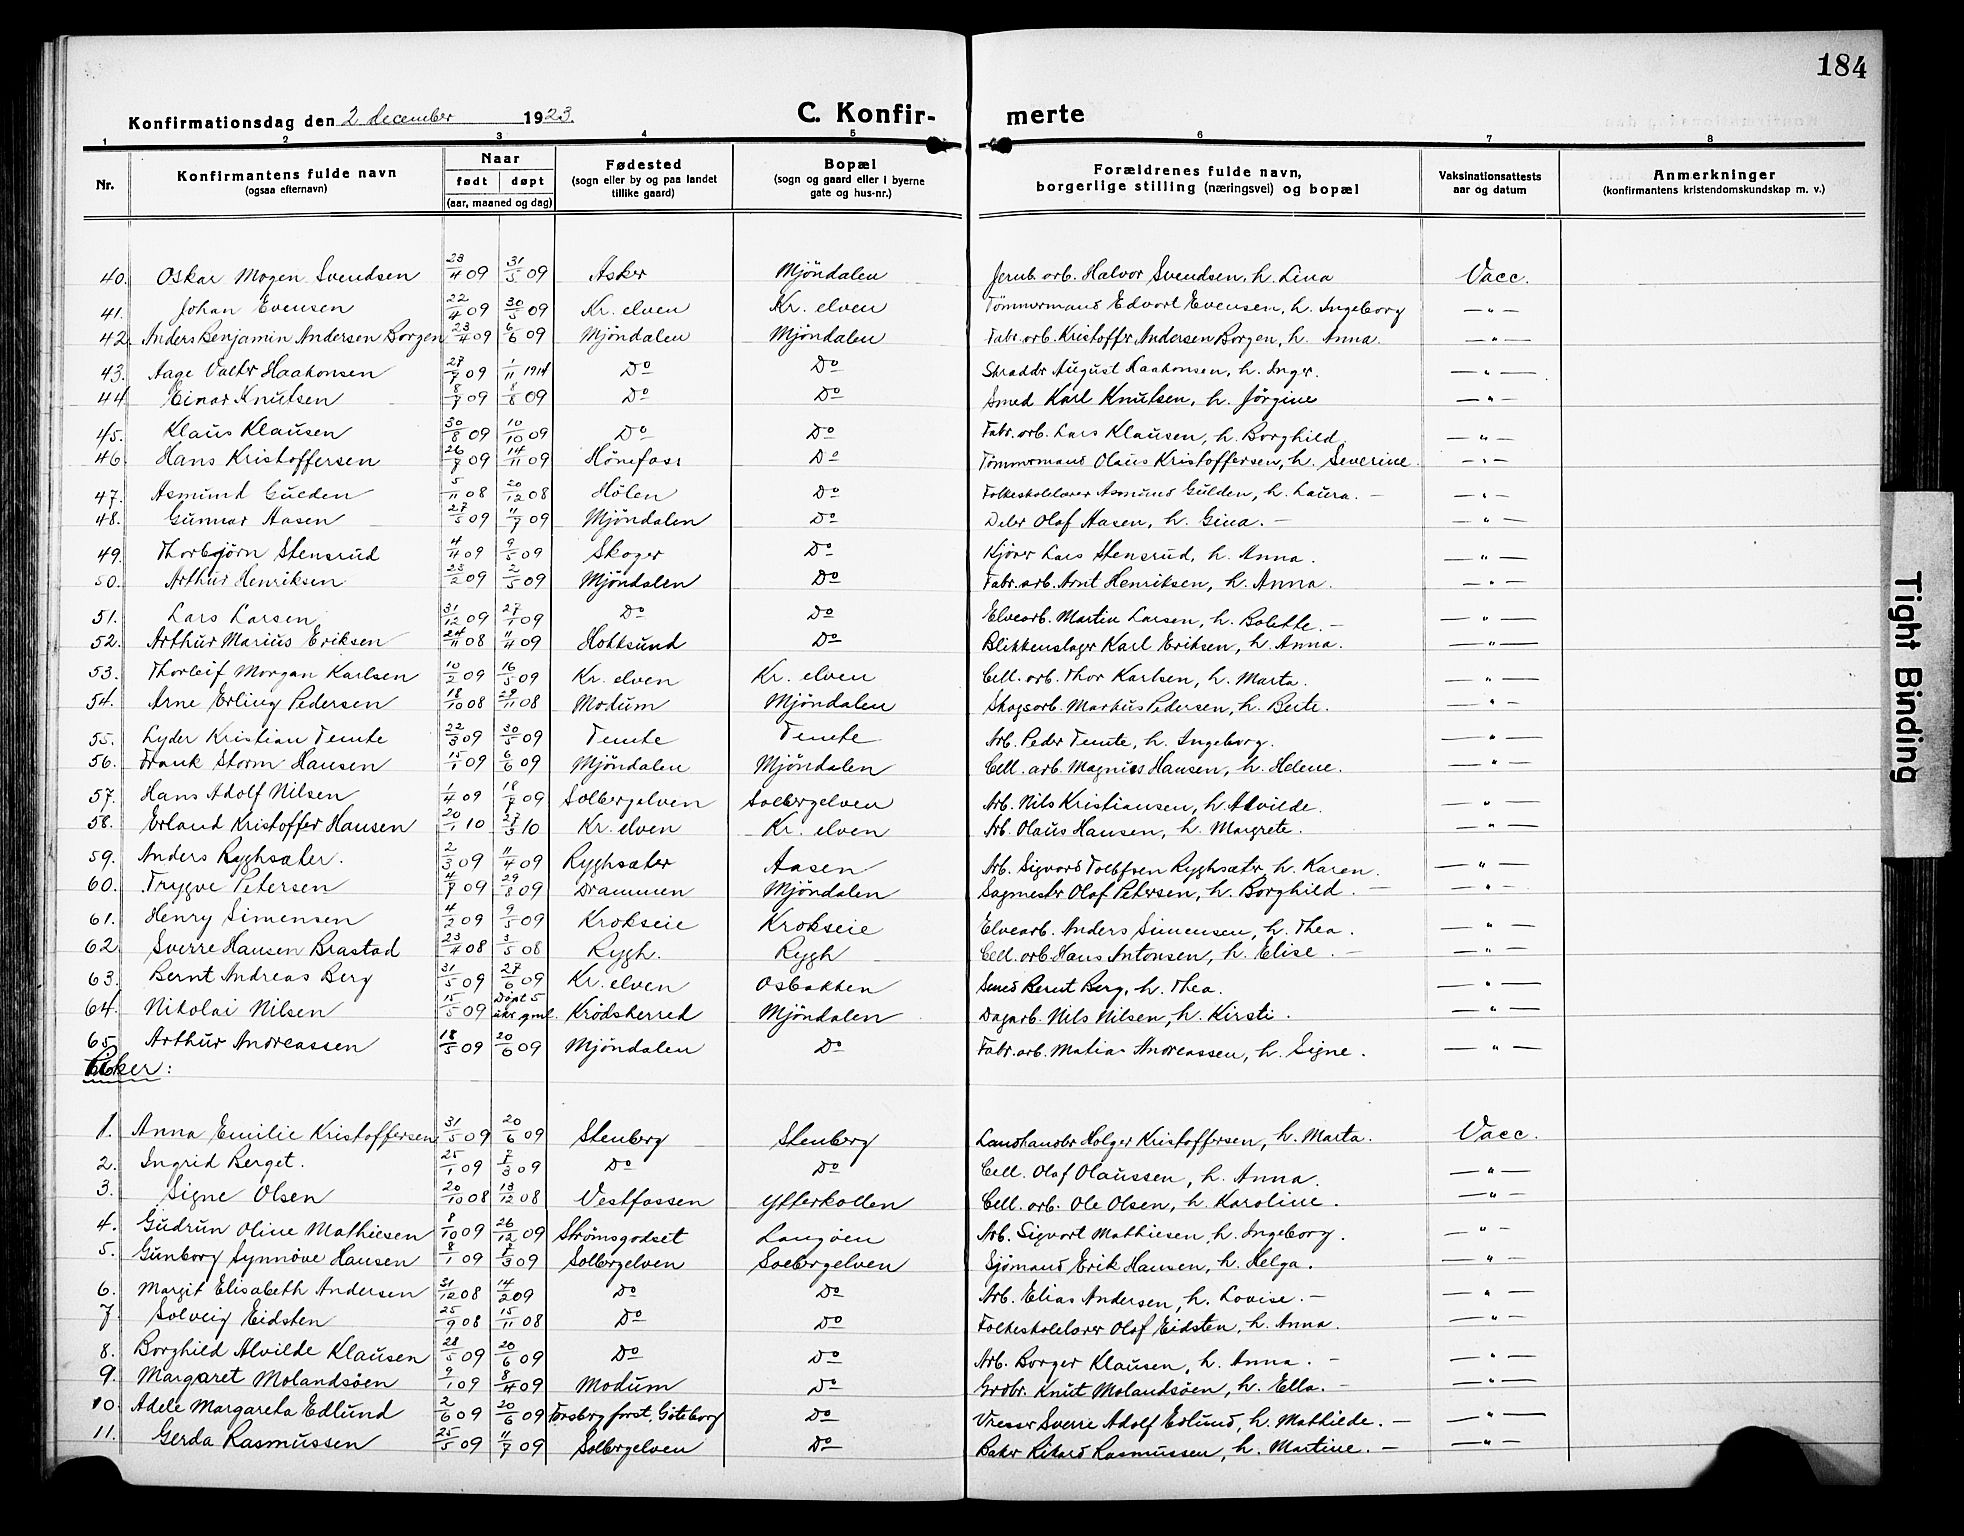 184
Konfirmationsdag den 2 december 1923. C. Konfir- merte
1 2 3 4 5 6 7 8
Nr. Konfirmantens fulde navn (ogsaa efternavn) Naar født døpt (aar, maaned og dag) Fødested (sogn eller by og paa landet tillike gaard) Bopæl (sogn og gaard eller i byerne gate og hus-nr.) Forældrenes fulde navn, borgerlige stilling (næringsvei) og bopæl Vaksinationsattests aar og datum Anmerkninger (konfirmantens kristendomskundskap m. v.)
40. Oskar Mogen Svendsen 23/4 09 31/5 09 Asker Mjöndalen Jernb. arb. Halvor Svendsen, h. Lina Vacc.
41. Johan Evensen 22/4 09 30/5 09 Kr. elven Kr. elven Tömmermand Edvart Evensen, h. Ingeborg — " —
42. Anders Benjamin Andersen Borgen 23/4 09 6/6 09 Mjöndalen Mjöndalen Fabr. arb. Kristoffer Andersen Borgen, h. Anna. — " —
43. Aage Valter Haakonsen 27/7 09 1/11 1914 Do Do Skrædder August Haakonsen, h. Inger. — " —
44. Einar Knutsen 8/7 09 8/8 09 Do Do Smed Karl Knutsen, h. Jörgine — " —
45. Klaus Klausen 30/8 09 10/10 09 Do Do Fabr. arb. Lars Klausen, h. Borghild. — " —
46. Hans Kristoffersen 26/7 09 14/11 09 Hönefoss Do Tömmermand Olaus Kristoffersen, h. Severine. — " —
47. Asmund Gulden 5/11 08 20/12 08 Hölen Do Folkeskolelærer Asmund Gulden, h. Laura. — — " —
48. Gunnar Aasen 27/5 09 11/7 09 Mjöndalen Do Olaf Aasen, h. Gina. — — " —
49. Thorbjörn Stensrud 4/4 09 9/5 09 Skoger Do Kjörer Lars Stensrud, h. Anna. — " —
50. Arthur Henriksen 23/2 09 2/5 09 Mjöndalen Do Fabr. arb. Arnt Henriksen, h. Anna. — " —
51. Lars Larsen 31/12 09 27/1 09 Do Do Elvearb. Martin Larsen, h. Bolette. — — " —
52. Arthur Marius Eriksen 24/11 08 11/4 09 Hokksund Do Blikkenslager Karl Eriksen, h. Anna. — " —
53. Thorleif Morgan Karlsen 10/2 09 16/5 09 Kr. elven Kr. elven Cell. arb. Thor Karlsen, h. Marta. — " —
54. Arne Erling Pedersen 18/10 08 29/11 08 Modum Mjöndalen Skogsarb. Markus Pedersen, h. Berte. — " —
55. Lyder Kristian Temte 22/3 09 30/5 09 Temte Temte Arb. Peder Temte, h. Ingeborg. — " —
56. Frank Storm Hansen 15/1 09 6/6 09 Mjöndalen Mjöndalen Cell. arb. Magnus Hansen, h. Helene. — " —
57. Hans Adolf Nilsen 1/4 09 18/7 09 Solbergelven Solbergelven Arb. Nils Kristiansen, h. Alvilde. — " —
58. Erland Kristoffer Hansen 20/1 10 27/3 10 Kr. elven Kr. elven Arb. Olaus Hansen, h. Margrete. — " —
59. Anders Ryghsæter. 2/3 09 11/4 09 Ryghsæter Aasen Arb. Sigvard Ryghsæter h. Karen. — " —
60. Trygve Petersen 4/7 09 29/8 09 Drammen Mjöndalen Sagmester Olaf Petersen, h. Borghild. — — " —
61. Henry Simensen 4/2 09 9/5 09 Krokseie Krokseie Elvearb. Anders Simensen, h. Thea. — " —
62. Sverre Hansen Brastad 23/4 08 3/5 08 Rygh. Rygh Cell. arb. Hans Antonsen, h. Elise. — — " —
63. Bernt Andreas Berg 31/5 09 27/6 09 Kr. elven Osbakken Smed Bernt Berg, h. Thea. — " —
64. Nikolai Nilsen 15/5 09 Döpt 5 uker gml. Krödsherred Mjöndalen Dagarb. Nils Nilsen, h. Kirsti. — " —
65. Arthur Andreassen 18/5 09 20/6 09 Mjöndalen Do Fabr. arb. Matias Andreassen, h. Signe. — " —
Piker:
1. Anna Emilie Kristoffersen 31/5 09 20/6 09 Stenberg Stenberg Landhandler Holger Kristoffersen, h. Marta. Vacc.
2. Ingrid Berget. 25/1 09 7/3 09 Do Do Cell. Olaf Olaussen, h. Anna. — " —
3. Signe Olsen 20/10 08 13/12 08 Vestfossen Ytterkollen Cell. arb. Ole Olsen, h. Karoline. — " —
4. Gudrun Oline Mathiesen 8/10 09 26/12 09 Strømsgodset Langøen Arb. Sigvart Mathiesen, h. Ingeborg. — " —
5. Gunborg Synnöve Hansen 8/1 09 7/3 09 Solbergelven Solbergelven Sjömand Erik Hansen, h. Helga. — " —
6. Margit Elisabeth Andersen 31/12 08 14/2 09 Do Do Arb. Elias Andersen, h. Lovise. — — " —
7 Solveig Eidsten 25/9 08 15/11 08 Do Do Folkeskolelærer Olaf Eidsten, h. Anna. — " —
8. Borghild Alvilde Klausen 28/5 09 20/6 09 Do Do Arb. Borger Klausen, h. Anna. — — " —
9. Margaret Molandsöen 9/1 09 8/4 09 Modum Do Grdbr. Knut Molandsöen, h. Ella. — — " —
10 Adele Margareta Edlund 2/6 09 20/6 09 Göteborg Do Sverre Adolf Edlund, h. Mathilde. — — " —
11. Gerda Rasmussen 25/5 09 11/7 09 Solbergelven Do Baker Rikard Rasmussen, h. Martine. — — " —
Tight Binding